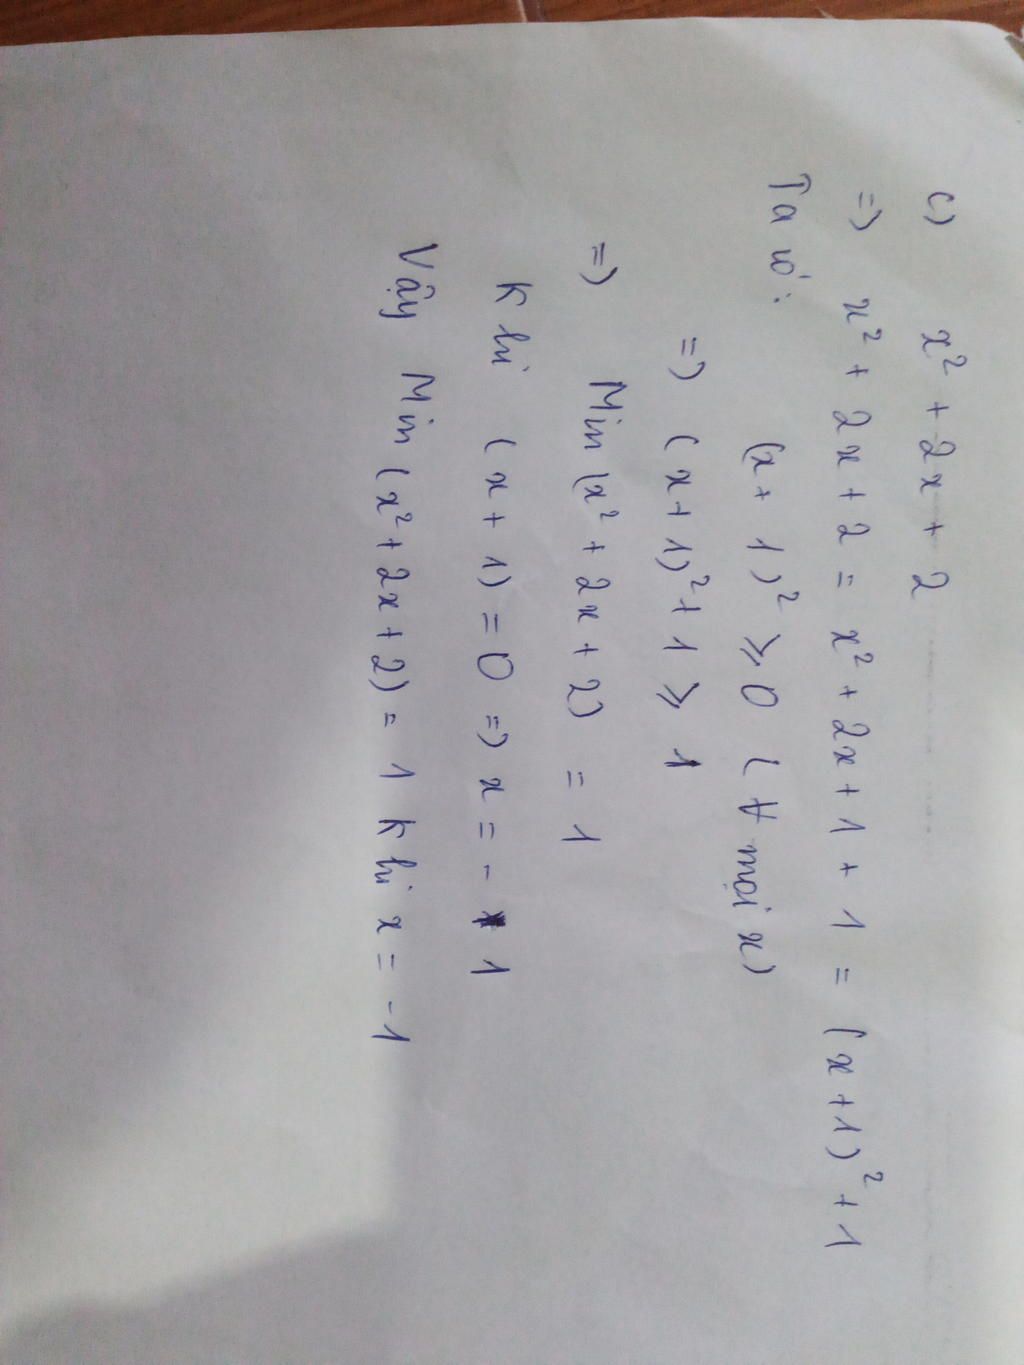 c) x² + 2x + 2
=) x² + 2x + 2 = x² + 2x + 1 + 1 = (x+1)² + 1
Ta có:
(x + 1)² ⩾ 0 (∀ mọi x)
=) (x+1)² + 1 ⩾ 1
=) Min (x² + 2x + 2) = 1
Khi (x + 1) = 0 =) x = - 1
Vậy Min (x² + 2x + 2) = 1 Khi x = -1